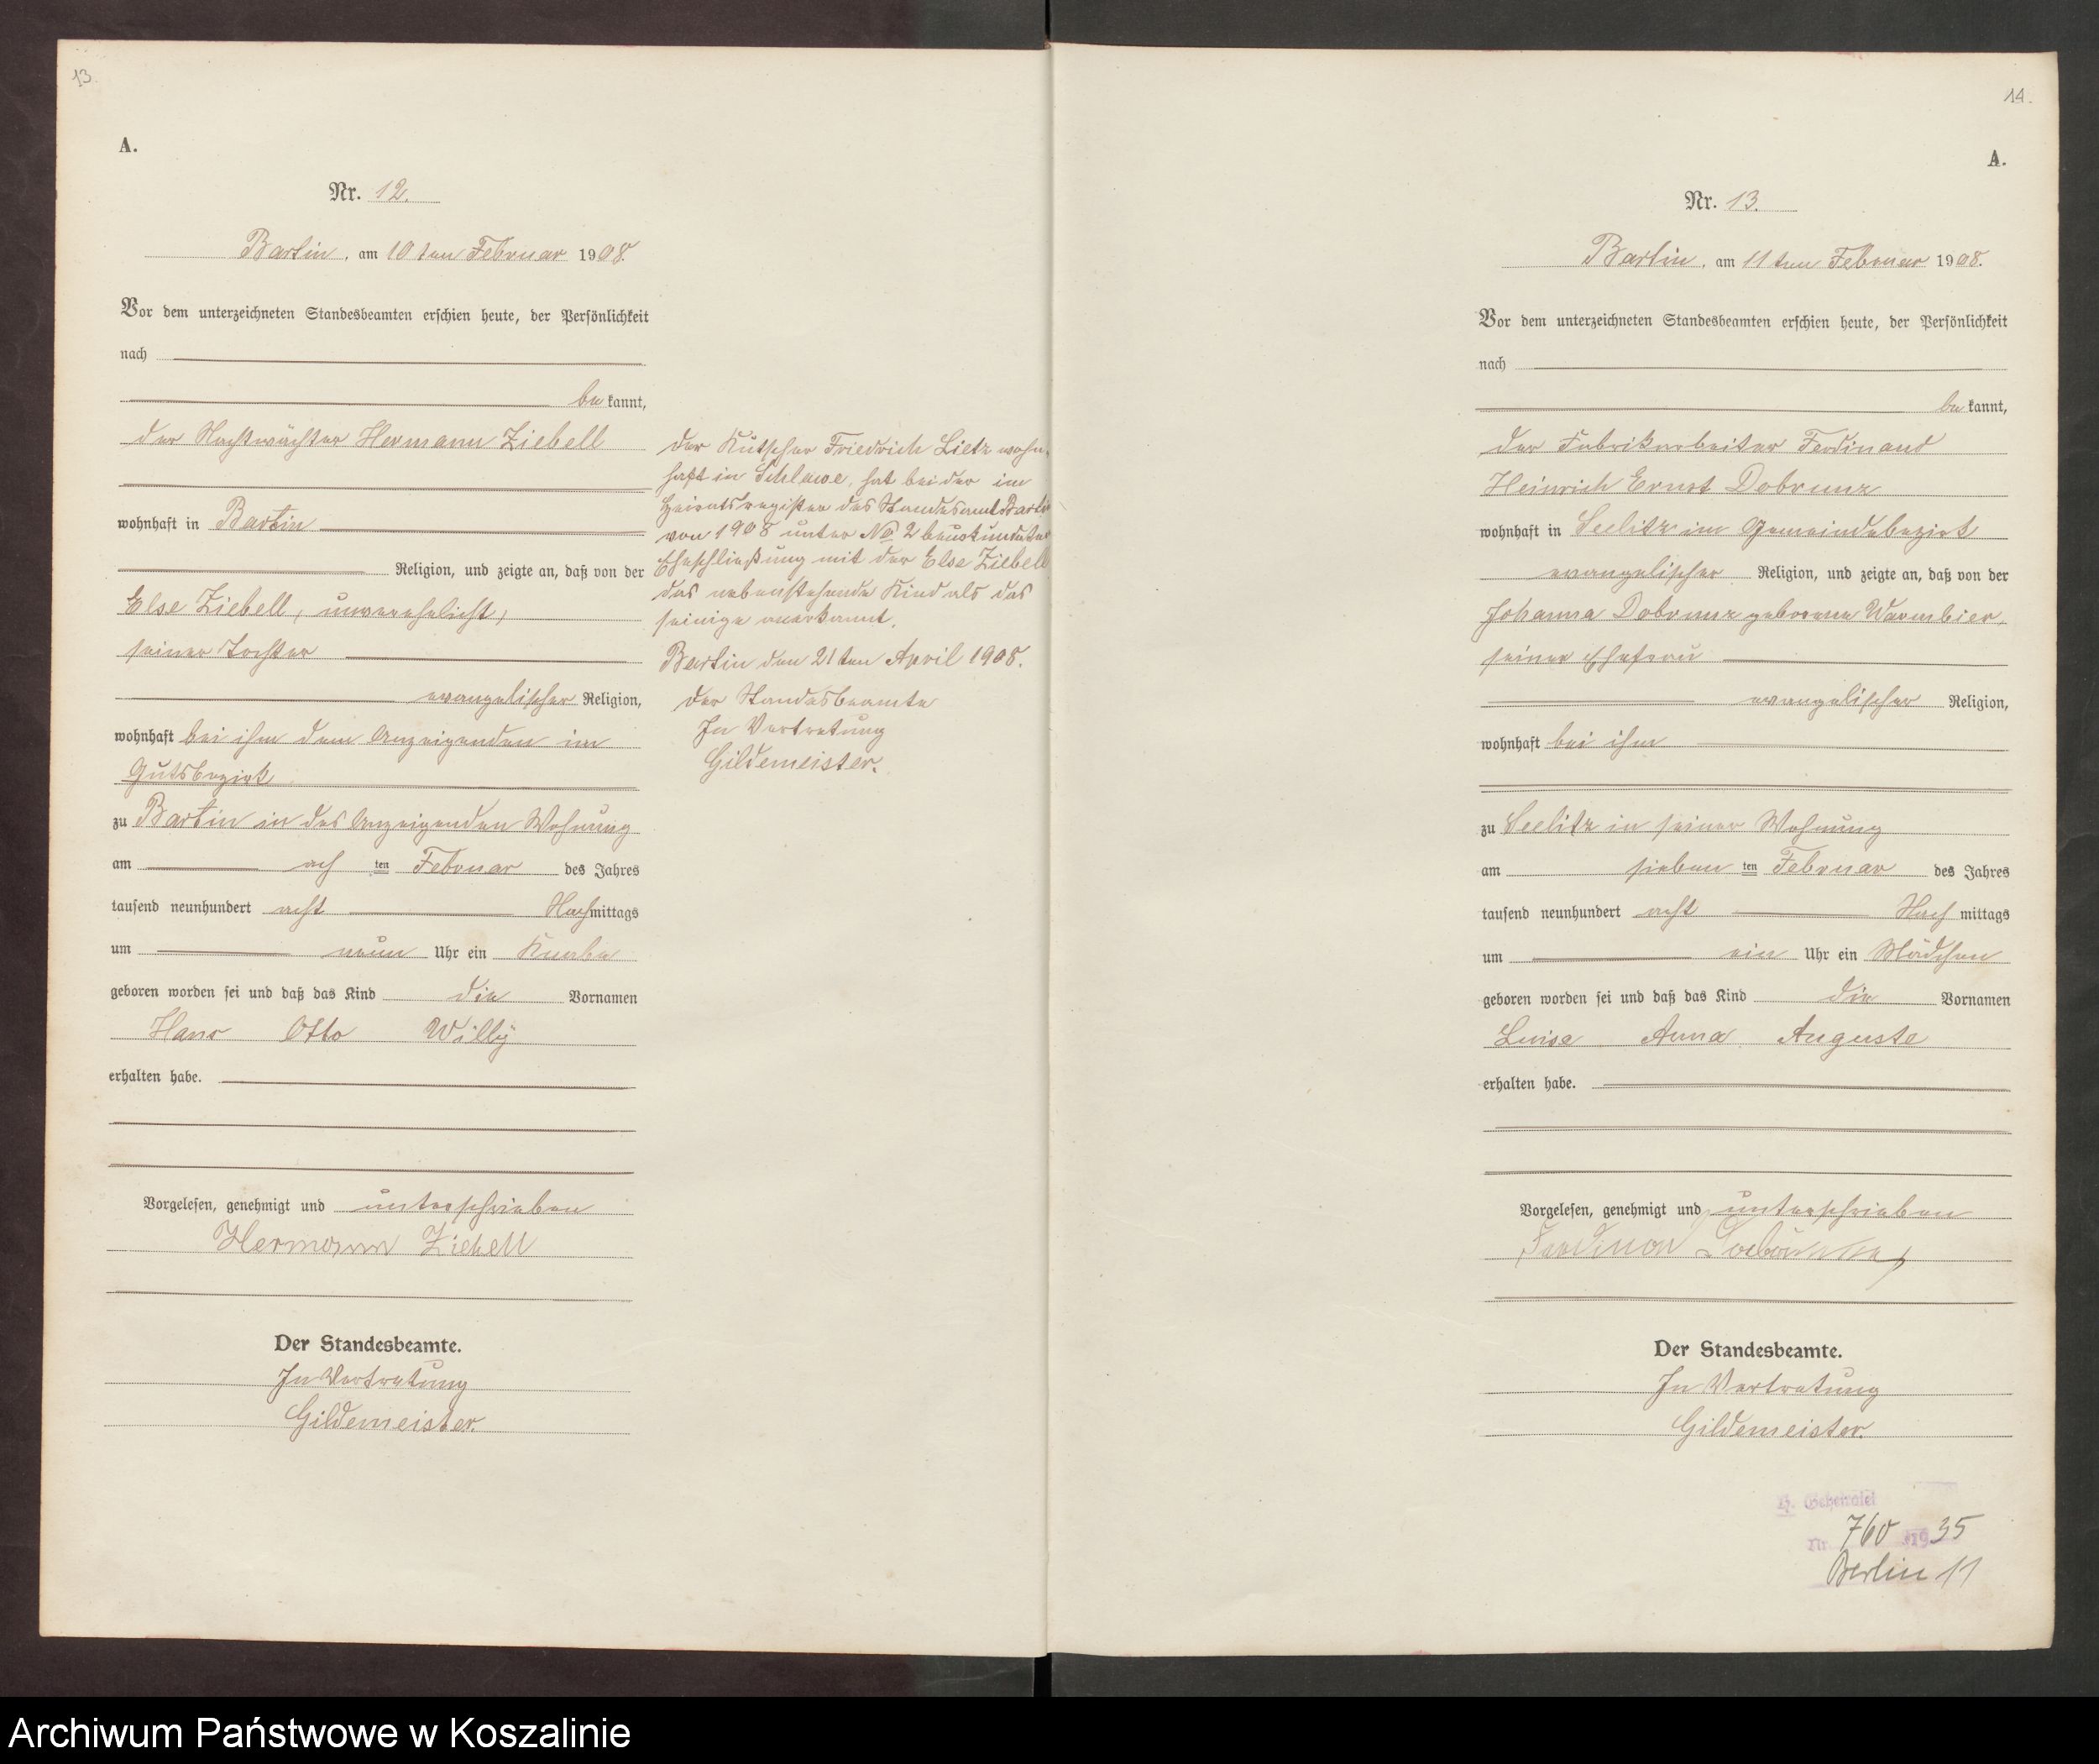 13.
A.
Nr. 12.
Bartin, am 10 ten Februar 1908.
Vor dem unterzeichneten Standesbeamten erschien heute, der Persönlichkeit
nach
be kannt,
der Nachtwächter Hermann Ziebell
wohnhaft in Bartin
Religion, und zeigte an, daß von der
Else Ziebell, unverehelicht,
seiner Tochter
evangelischer Religion,
wohnhaft bei ihm dem Anzeigenden im
Gutsbezirk
zu Bartin in des Anzeigenden Wohnung
am ach ten Februar des Jahres
tausend neunhundert acht Nachmittags
um neun Uhr ein Knabe
geboren worden sei und daß das Kind die Vornamen
Hans Otto Willy
erhalten habe.
Vorgelesen, genehmigt und unterschrieben
Hermann Ziebell
Der Standesbeamte.
In Vertretung
Gildemeister.
Der Kutscher Friedrich Lietz wohn-
haft in Schlawe, hat bei der im
Heiratsregister des Standesamts Bartin
von 1908 unter No 2 beurkundeten
Eheschließung mit der Else Ziebell
das nebenstehende Kind als das
seinige anerkannt.
Bartin den 21 ten April 1908.
Der Standesbeamte
In Vertretung
Gildemeister.
14.
A.
Nr. 13.
Bartin, am 11 ten Februar 1908.
Vor dem unterzeichneten Standesbeamten erschien heute, der Persönlichkeit
nach
be kannt,
der Fabrikarbeiter Ferdinand
Heinrich Ernst Dobrunz
wohnhaft in Seelitz im Gemeindebezirk
evangelischer Religion, und zeigte an, daß von der
Johanna Dobrunz geborene Warmbier,
seiner Ehefrau
evangelischer Religion,
wohnhaft bei ihm
zu Seelitz in seiner Wohnung
am sieben ten Februar des Jahres
tausend neunhundert acht Nach mittags
um ein Uhr ein Mädchen
geboren worden sei und daß das Kind die Vornamen
Luise Anna Auguste
erhalten habe.
Vorgelesen, genehmigt und unterschrieben
Ferdinand
Der Standesbeamte.
In Vertretung
Gildemeister.
Nr. 760 1935
Berlin 11
Archiwum Państwowe w Koszalinie